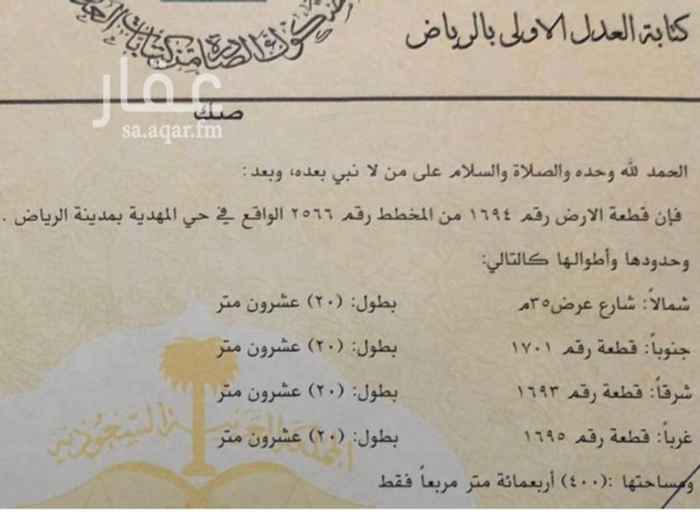 كتابة العدل الاولى بالرياض
عقار
sa.aqar.fm
صك
الحمد لله وحده والصلاة والسلام على من لا نبي بعده، وبعد:
فإن قطعة الارض رقم ١٦٩٤ من المخطط رقم ٢٥٦٦ الواقع في حي المهدية بمدينة الرياض .
وحدودها وأطوالها كالتالي:
شمالاً: شارع عرض ٣٥م بطول: (٢٠) عشرون متر
جنوباً: قطعة رقم ١٧٠١ بطول: (٢٠) عشرون متر
شرقاً: قطعة رقم ١٦٩٣ بطول: (٢٠) عشرون متر
غرباً: قطعة رقم ١٦٩٥ بطول: (٢٠) عشرون متر
ومساحتها :(٤٠٠) أربعمائة متر مربعاً فقط